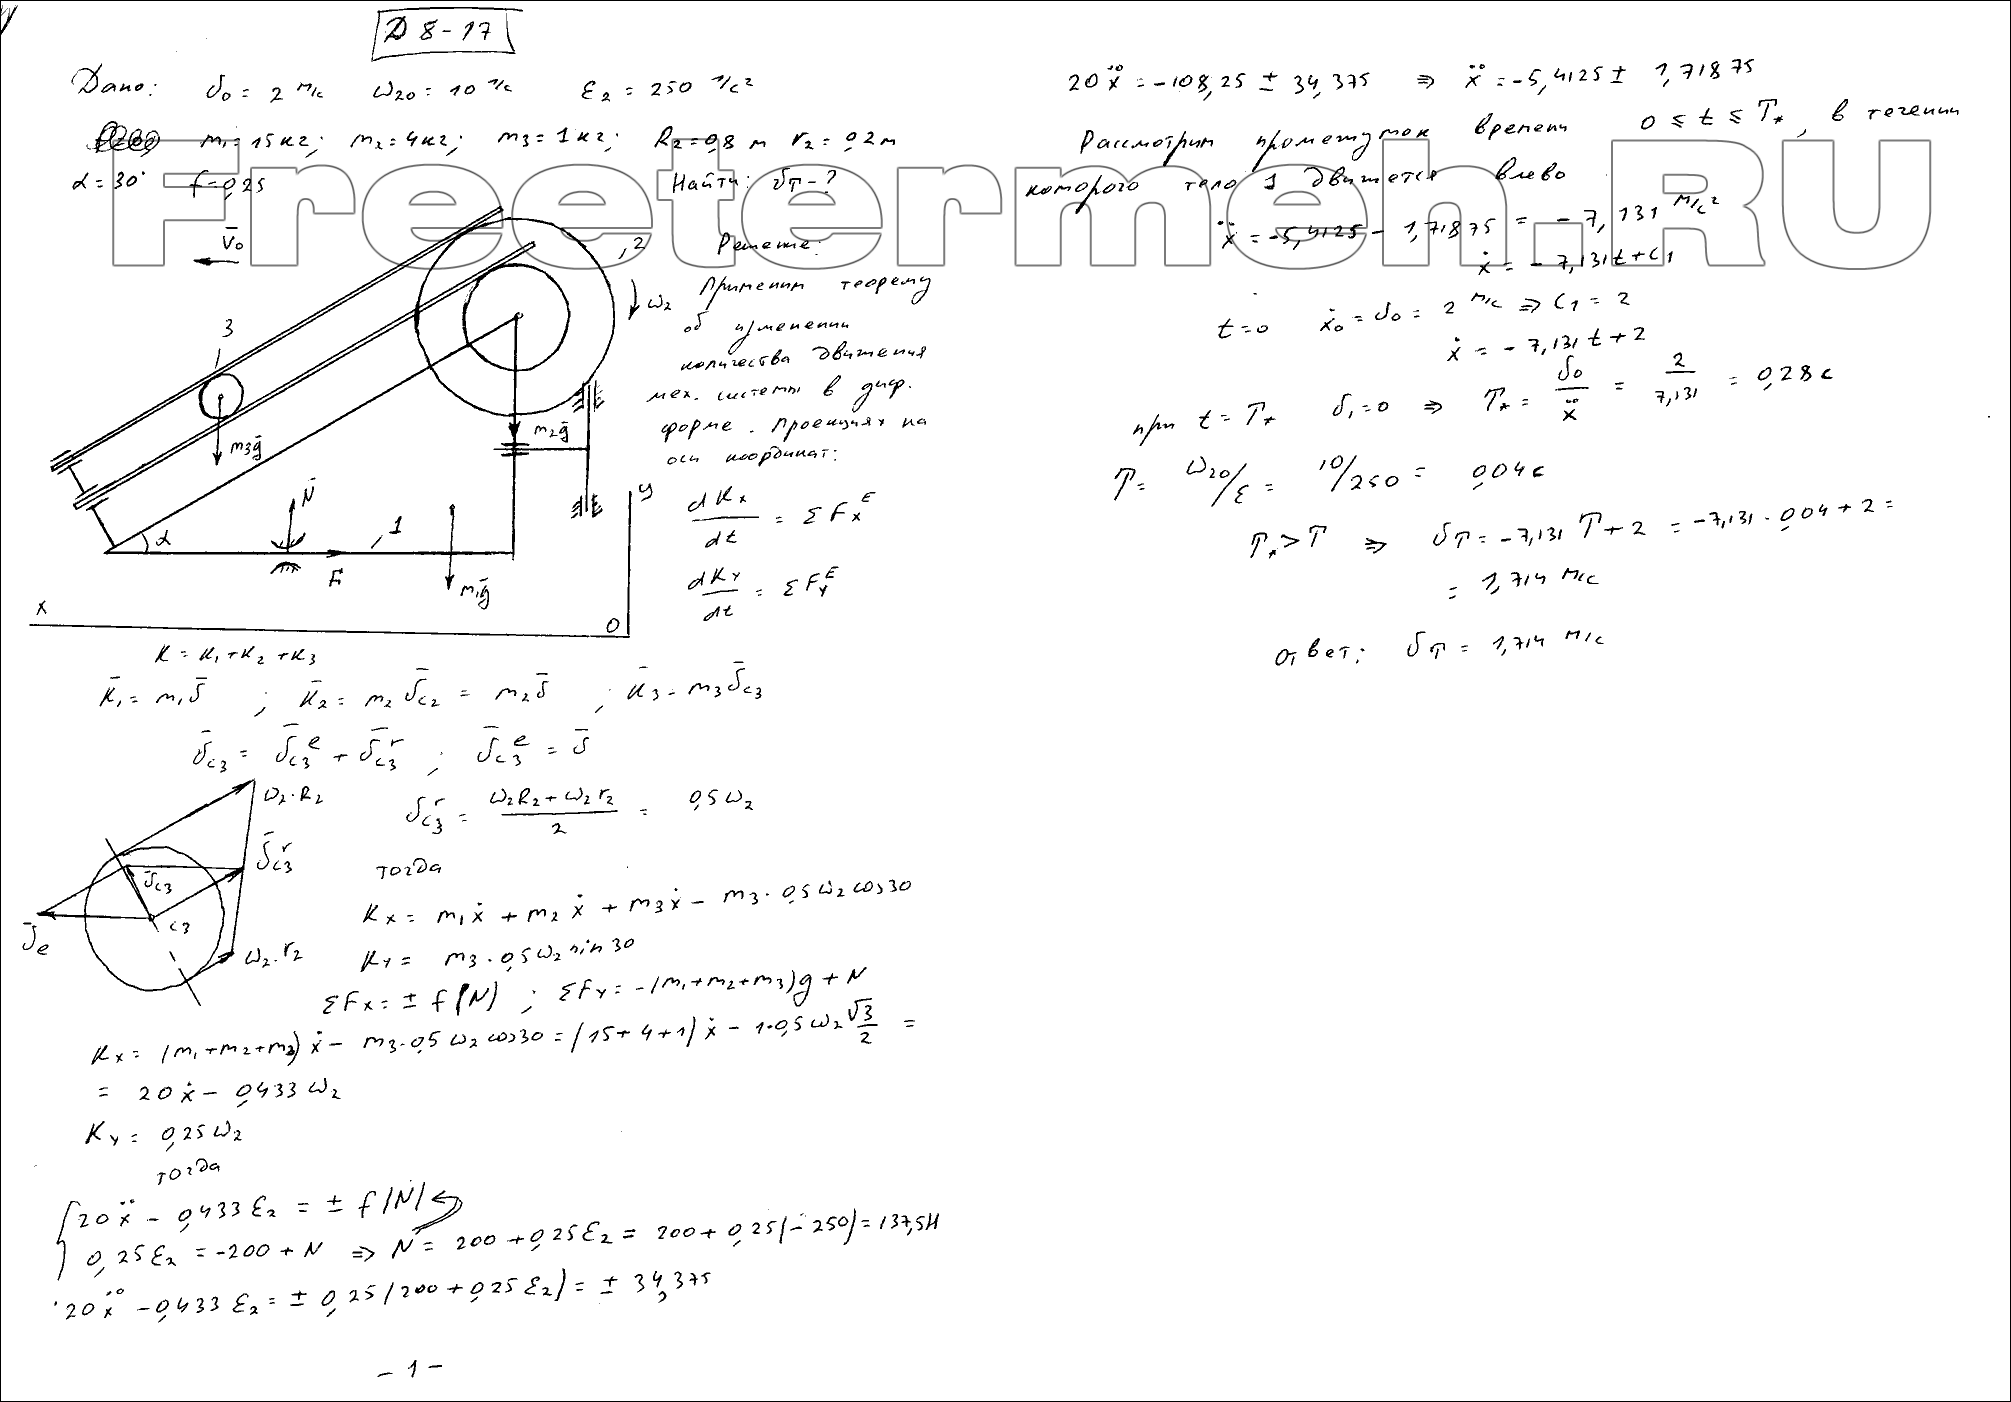 Д 8-17
Дано: υ₀ = 2 м/с ω₂₀ = 10 1/с ε₂ = 250 1/с²
m₁ = 15 кг; m₂ = 4 кг; m₃ = 1 кг; R₂ = 0,8 м r₂ = 0,2 м
α = 30° f = 0,25 Найти: υт - ?
Freetermeh.RU
V̄₀
2
3
ω₂
m₃ḡ
m₂ḡ
N̄
α
1
F̄
m₁ḡ
x
y
O
Решение:
Применим теорему
об изменении
количества движения
мех. системы в диф.
форме. Проекциях на
оси координат:
dKx/dt = ΣFxᴱ
dKy/dt = ΣFyᴱ
K = K₁ + K₂ + K₃
K̄₁ = m₁ῡ ; K̄₂ = m₂ῡc₂ = m₂ῡ ; K̄₃ = m₃ῡc₃
ῡc₃ = ῡc₃ᵉ + ῡc₃ʳ ; ῡc₃ᵉ = ῡ
ω₂·R₂
ῡc₃ʳ
ῡc₃
c₃
ῡe
ω₂·r₂
υc₃ʳ = (ω₂R₂ + ω₂r₂)/2 = 0,5ω₂
тогда
Kx = m₁ẋ + m₂ẋ + m₃ẋ - m₃·0,5ω₂cos30
Ky = m₃·0,5ω₂sin30
ΣFx = ± f|N| ; ΣFy = -(m₁+m₂+m₃)g + N
Kx = (m₁+m₂+m₃)ẋ - m₃·0,5ω₂cos30 = (15+4+1)ẋ - 1·0,5ω₂ √3/2 =
= 20ẋ - 0,433ω₂
Ky = 0,25ω₂
тогда
20ẍ - 0,433ε₂ = ± f|N|
0,25ε₂ = -200 + N ⇒ N = 200 + 0,25ε₂ = 200 + 0,25(-250) = 137,5Н
20ẍ - 0,433ε₂ = ± 0,25(200 + 0,25ε₂) = ± 34,375
- 1 -
20ẍ = -108,25 ± 34,375 ⇒ ẍ = -5,4125 ± 1,71875
Рассмотрим промежуток времени 0 ≤ t ≤ T*, в течении
которого тело 1 движется влево
ẍ = -5,4125 - 1,71875 = -7,131 м/с²
ẋ = -7,131t + C₁
t = 0 ẋ₀ = υ₀ = 2 м/с ⇒ C₁ = 2
ẋ = -7,131t + 2
при t = T* υ₁ = 0 ⇒ T* = υ₀/ẍ = 2/7,131 = 0,28 с
T = ω₂₀/ε = 10/250 = 0,04 с
T* > T ⇒ υт = -7,131 T + 2 = -7,131·0,04 + 2 =
= 1,714 м/с
Ответ: υт = 1,714 м/с